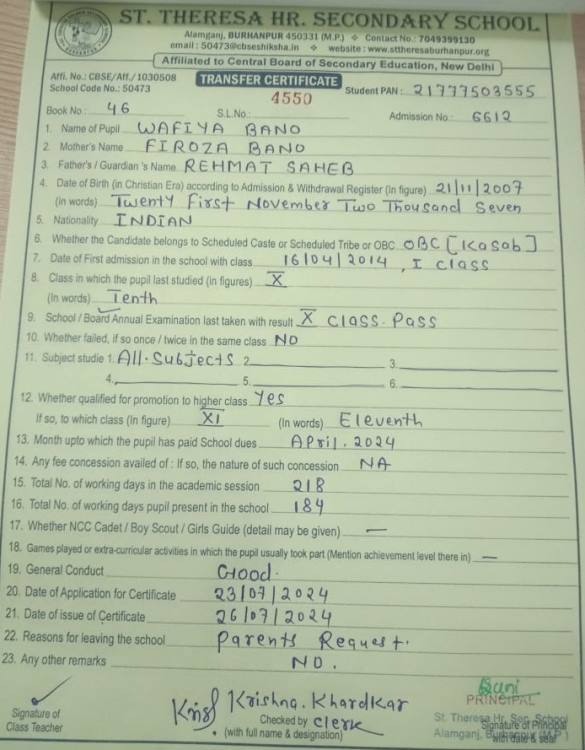 ST. THERESA HR. SECONDARY SCHOOL
Alamganj, BURHANPUR 450331 (M.P.) ❖ Contact No.: 7049399130
email : 50473@cbseshiksha.in ❖ website : www.sttheresaburhanpur.org
Affiliated to Central Board of Secondary Education, New Delhi
Affi. No.: CBSE/Aff./1030508 TRANSFER CERTIFICATE Student PAN : 21777503555
School Code No.: 50473 4550
Book No.: 46 S.L.No.: Admission No. 6612
1. Name of Pupil WAFIYA BANO
2. Mother's Name FIROZA BANO
3. Father's / Guardian 's Name REHMAT SAHEB
4. Date of Birth (in Christian Era) according to Admission & Withdrawal Register (in figure) 21/11/2007
(in words) Twenty First November Two Thousand Seven
5. Nationality INDIAN
6. Whether the Candidate belongs to Scheduled Caste or Scheduled Tribe or OBC OBC [Kasab]
7. Date of First admission in the school with class 16/04/2014, I class
8. Class in which the pupil last studied (in figures) X
(In words) Tenth
9. School / Board Annual Examination last taken with result X class. Pass
10. Whether failed, if so once / twice in the same class NO
11. Subject studie 1. All. Subjects 2. 3.
4. 5. 6.
12. Whether qualified for promotion to higher class Yes
If so, to which class (In figure) XI (In words) Eleventh
13. Month upto which the pupil has paid School dues April. 2024
14. Any fee concession availed of : If so, the nature of such concession NA
15. Total No. of working days in the academic session 218
16. Total No. of working days pupil present in the school 184
17. Whether NCC Cadet / Boy Scout / Girls Guide (detail may be given) —
18. Games played or extra-curricular activities in which the pupil usually took part (Mention achievement level there in) —
19. General Conduct Good.
20. Date of Application for Certificate 23/07/2024
21. Date of issue of Certificate 26/07/2024
22. Reasons for leaving the school Parents Request.
23. Any other remarks NO.
Krishna. Khardkar
PRINCIPAL
Signature of
Class Teacher
Checked by Clerk
(with full name & designation)
St. Theresa Hr. Sec. School
Signature of Principal
Alamganj, Burhanpur (M.P.)
with date & seal